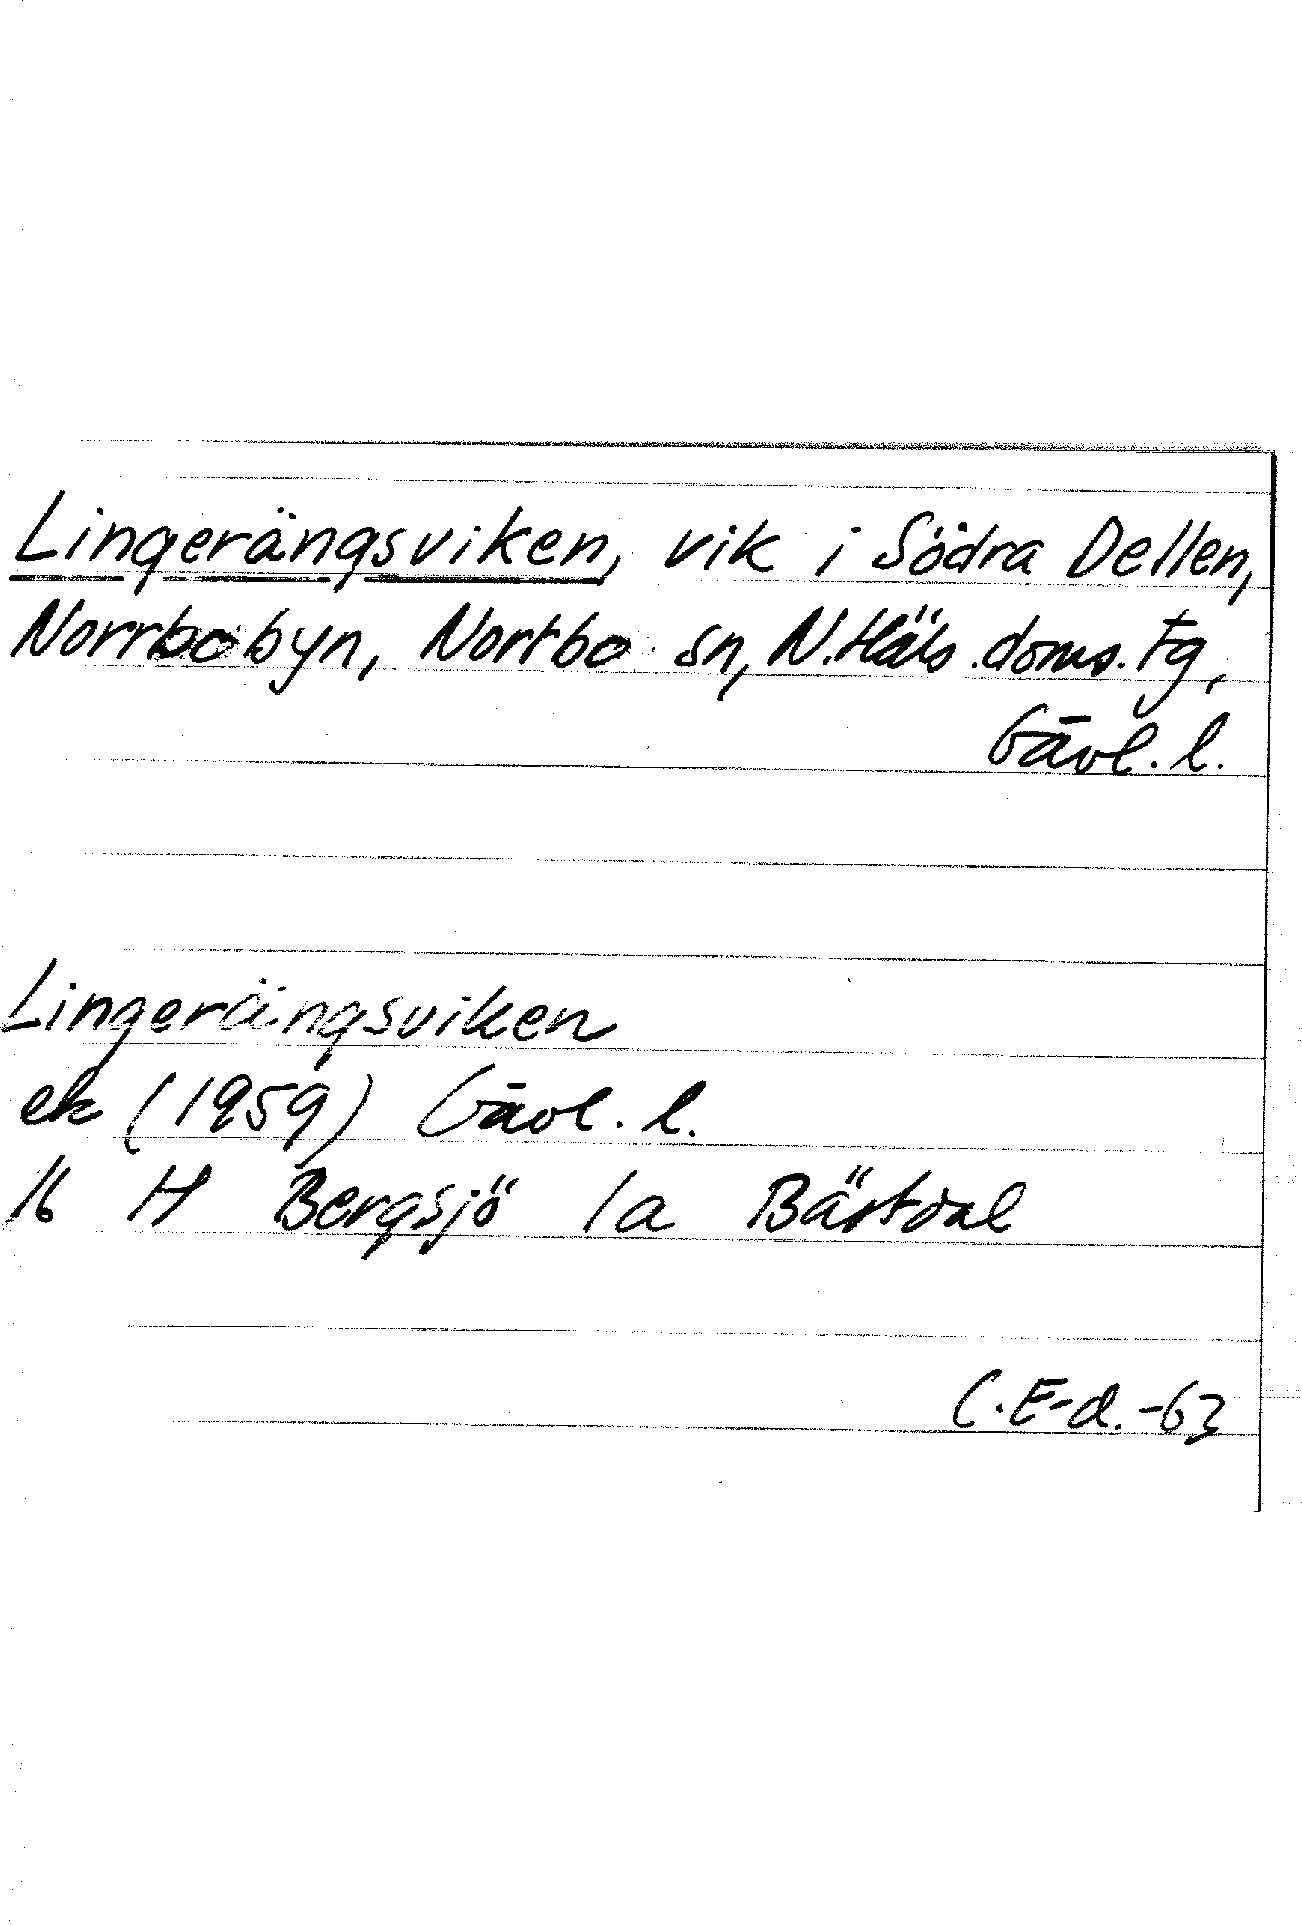 Lingerängsviken, vik i Södra Dellen,
Norrbobyn, Norrbo sn, N.Häls.doms.tg,
Gävl.l.
Lingerängsviken
ek (1959) Gävl.l.
16 H Bergsjö 1a Bästdal
C.E-d.-63